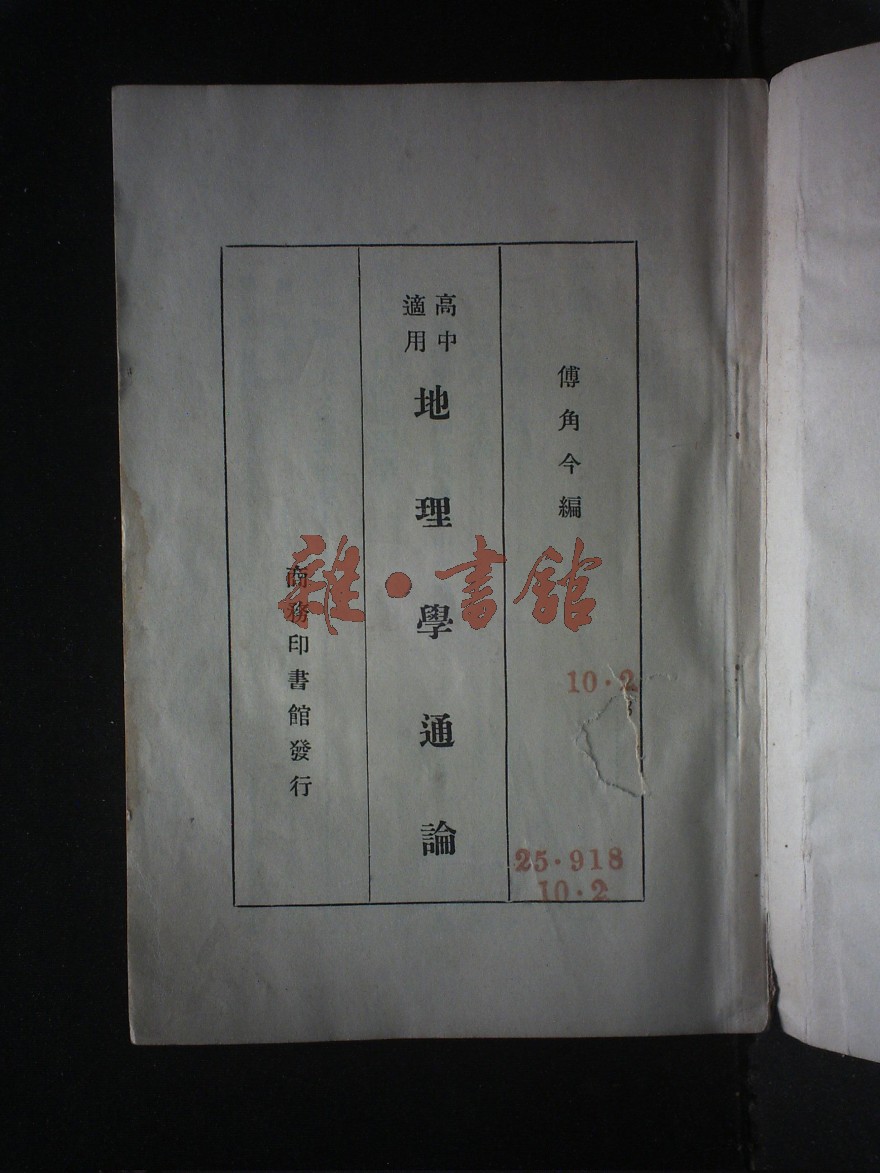 傅角今編
高中
適用
地理學通論
商務印書館發行
雜·書館
10·2
25·918
10·2